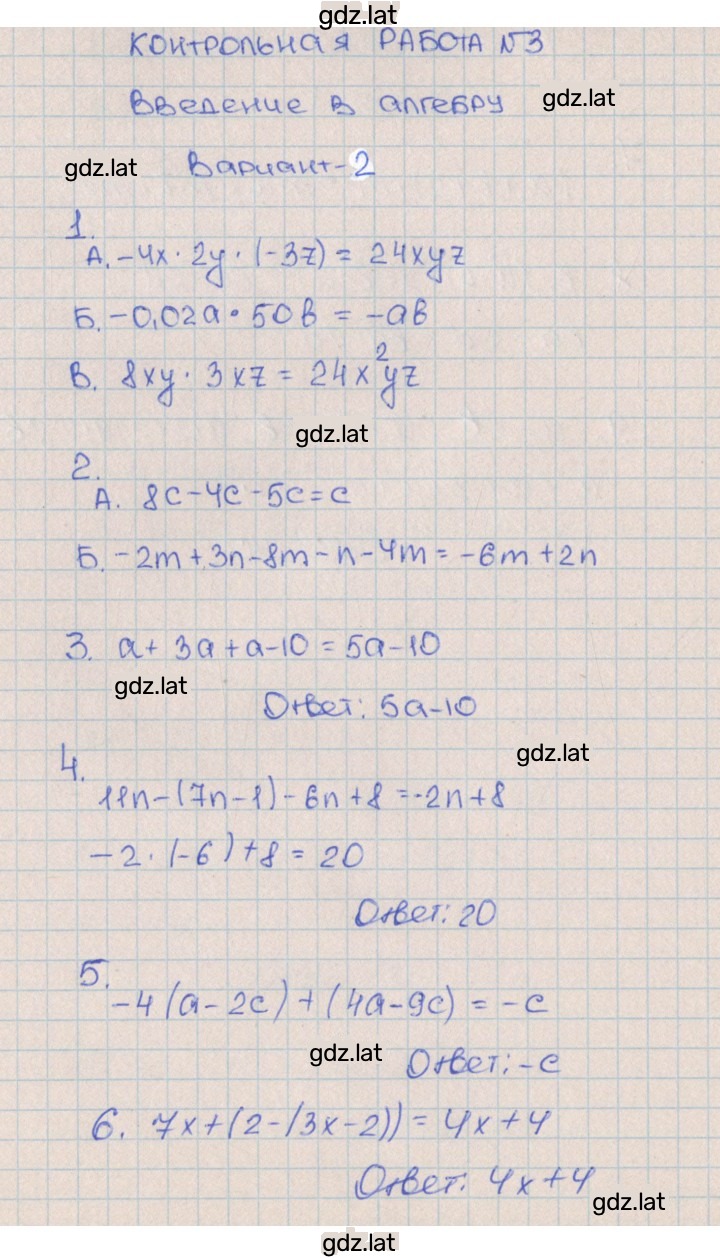 gdz.lat
КОНТРОЛЬНАЯ РАБОТА №3
Введение в алгебру gdz.lat
gdz.lat Вариант-2
1.
А. -4x · 2y · (-3z) = 24xyz
Б. -0,02a · 50b = -ab
В. 8xy · 3xz = 24x²yz
gdz.lat
2.
А. 8c-4c-5c=c
Б. -2m+3n-8m-n-4m=-6m+2n
3. a+3a+a-10=5a-10
gdz.lat
Ответ: 5a-10
gdz.lat
4.
11n-(7n-1)-6n+8=-2n+8
-2·(-6)+8=20
Ответ: 20
5.
-4(a-2c)+(4a-9c)=-c
gdz.lat Ответ: -c
6. 7x+(2-(3x-2))=4x+4
Ответ: 4x+4
gdz.lat
gdz.lat